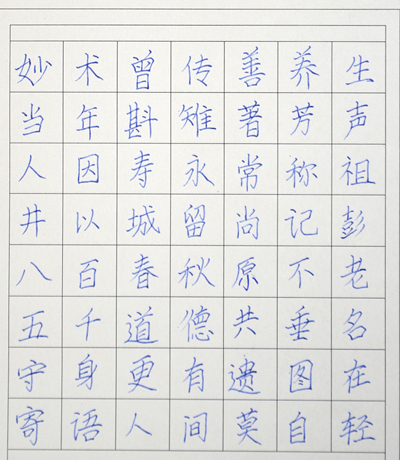 妙术曾传善养生
当年斟雉著芳声
人因寿永常称祖
井以城留尚记彭
八百春秋原不老
五千道德共垂名
守身更有遗图在
寄语人间莫自轻